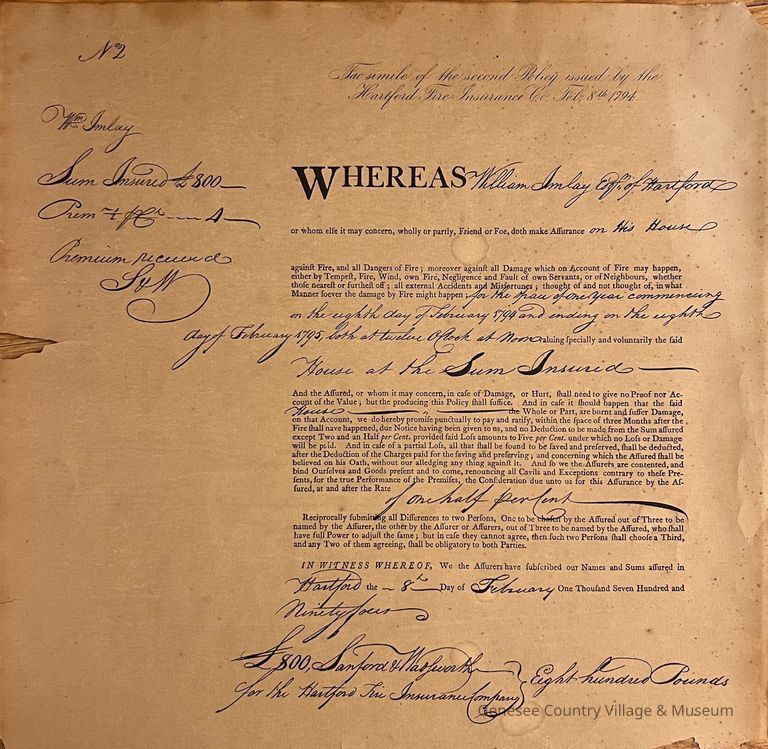 No 2
Fac simile of the second Policy issued by the
Hartford Fire Insurance Co. Feb. 8th 1794
Wm Imlay
Sum Insured £800
Prem ½ ⅌ Ct 4
Premium received
S & W
WHEREAS William Imlay Esqr. of Hartford
or whom else it may concern, wholly or partly, Friend or Foe, doth make Assurance on His House
againſt Fire, and all Dangers of Fire; moreover againſt all Damage which on Account of Fire may happen,
either by Tempeſt, Fire, Wind, own Fire, Negligence and Fault of own Servants, or of Neighbours, whether
thoſe neareſt or furtheſt off; all external Accidents and Miſfortunes; thought of and not thought of, in what
Manner ſoever the damage by Fire might happen for the space of one Year commencing
on the eighth day of February 1794 and ending on the eighth
day of February 1795, both at twelve O'Clock at Noon valuing ſpecially and voluntarily the ſaid
House at the Sum Insured
And the Aſſured, or whom it may concern, in caſe of Damage, or Hurt, ſhall need to give no Proof nor Ac-
count of the Value; but the producing this Policy ſhall ſuffice. And in caſe it ſhould happen that the ſaid
House " the Whole or Part, are burnt and ſuffer Damage,
on that Account, we do hereby promiſe punctually to pay and ſatisfy, within the ſpace of three Months after the
Fire ſhall have happened, due Notice having been given to us, and no Deduction to be made from the Sum aſſured
except Two and an Half per Cent. provided ſaid Loſs amounts to Five per Cent. under which no Loſs or Damage
will be paid. And in caſe of a partial Loſs, all that ſhall be found to be ſaved and preſerved, ſhall be deducted,
after the Deduction of the Charges paid for the ſaving and preſerving; and concerning which the Aſſured ſhall be
believed on his Oath, without our alledging any thing againſt it. And ſo we the Aſſurers are contented, and
bind Ourſelves and Goods preſent and to come, renouncing all Cavils and Exceptions contrary to theſe Pre-
ſents, for the true Performance of the Premiſes, the Conſideration due unto us for this Aſſurance by the Aſ-
ſured, at and after the Rate
of one half per Cent
Reciprocally ſubmitting all Differences to two Perſons, One to be choſen by the Aſſured out of Three to be
named by the Aſſurer, the other by the Aſſurer or Aſſurers, out of Three to be named by the Aſſured, who ſhall
have full Power to adjuſt the ſame; but in caſe they cannot agree, then ſuch two Perſons ſhall chooſe a Third,
and any Two of them agreeing, ſhall be obligatory to both Parties.
IN WITNESS WHEREOF, We the Aſſurers have ſubſcribed our Names and Sums aſſured in
Hartford the 8th Day of February One Thouſand Seven Hundred and
Ninety four
£800, Sanford & Wadsworth } Eight hundred Pounds
for the Hartford Fire Insurance Company
Genesee Country Village & Museum